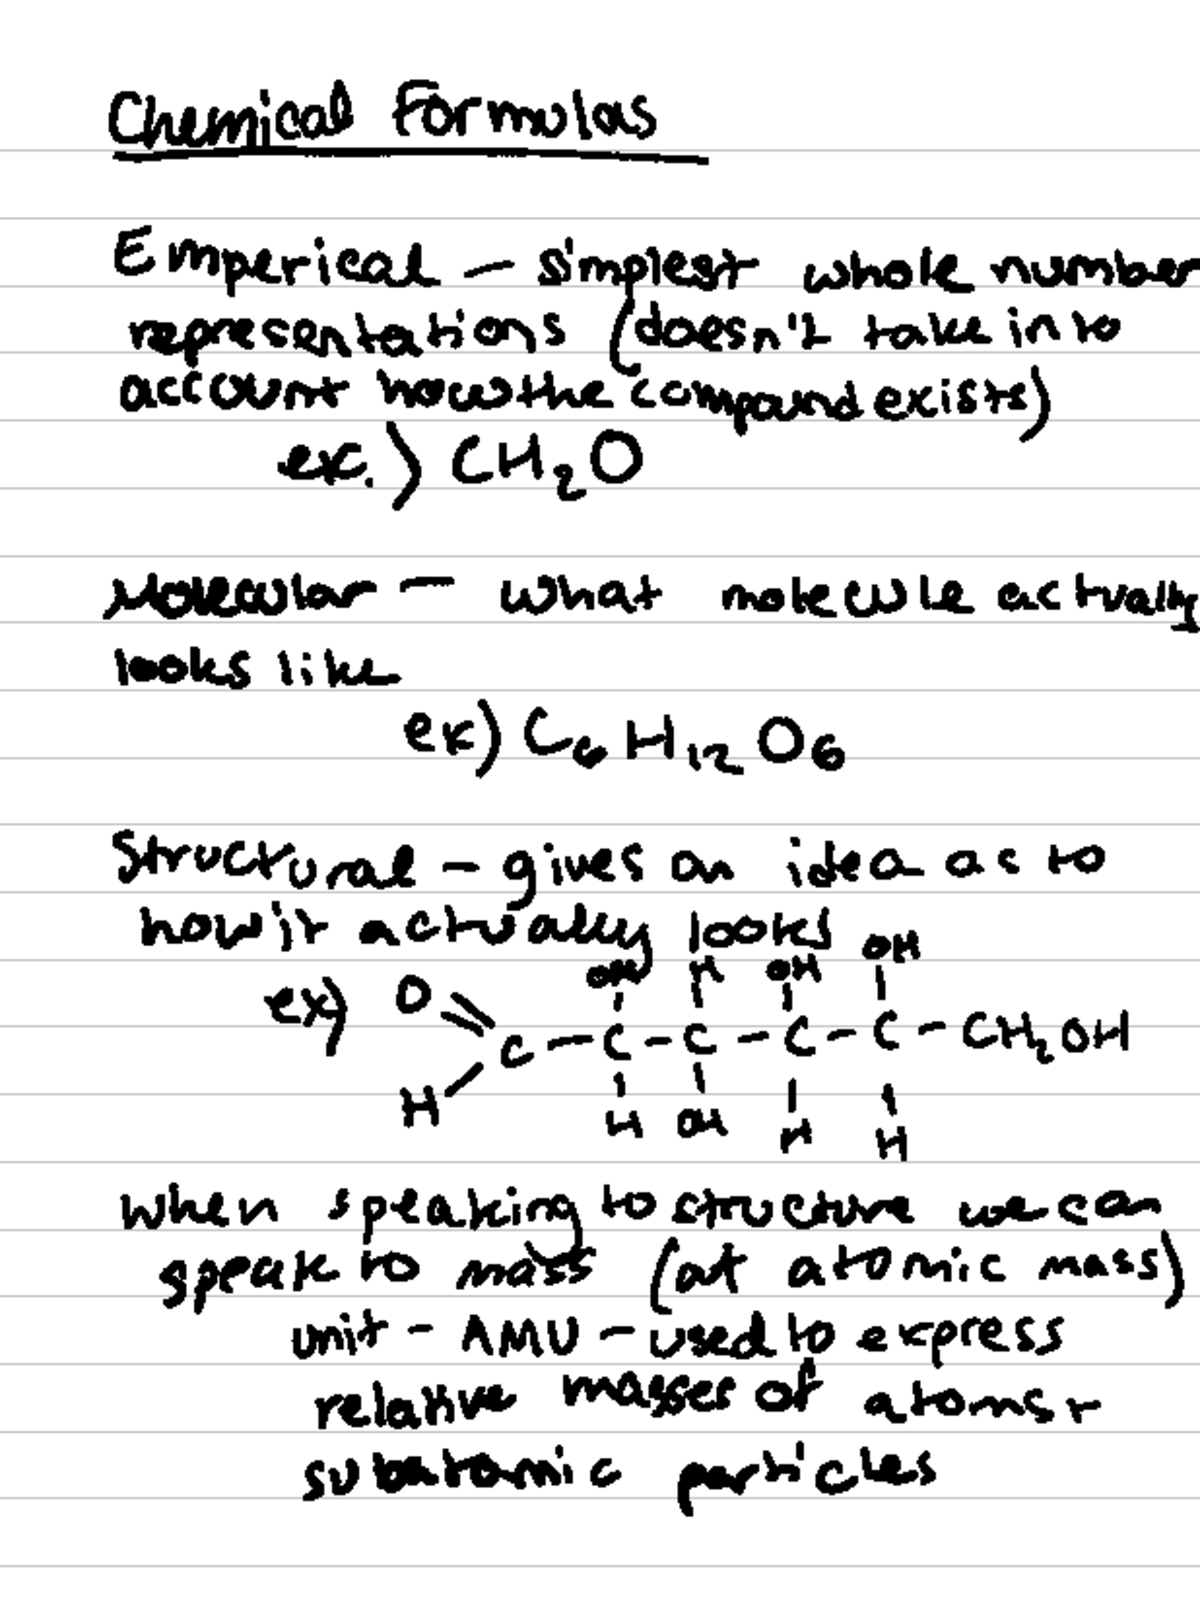 Chemical Formulas
Emperical – simplest whole number
representations (doesn't take into
account how the compound exists)
ex.) CH₂O
Molecular – what molecule actually
looks like
ex) C₆H₁₂O₆
Structural – gives an idea as to
how it actually looks
OH H OH OH
ex) O
C – C – C – C – C – CH₂OH
H
H OH H H
when speaking to structure we can
speak to mass (at atomic mass)
unit – AMU – used to express
relative masses of atoms +
subatomic particles